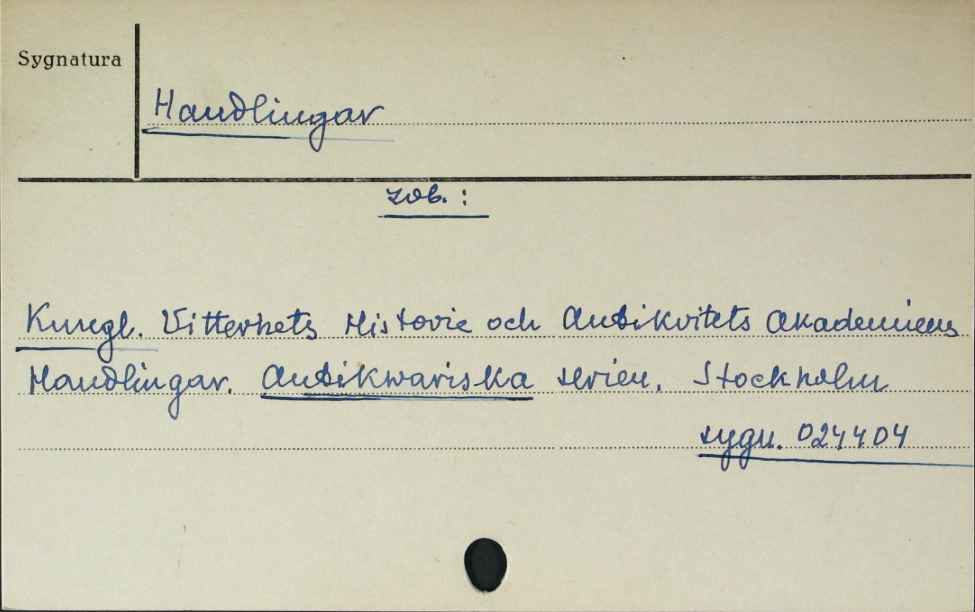 Sygnatura
Handlingar
zob. :
Kungl. Vitterhets Historie och Antikvitets Akademiens
Handlingar. Antikwariska serien. Stockholm
sygn. 024404